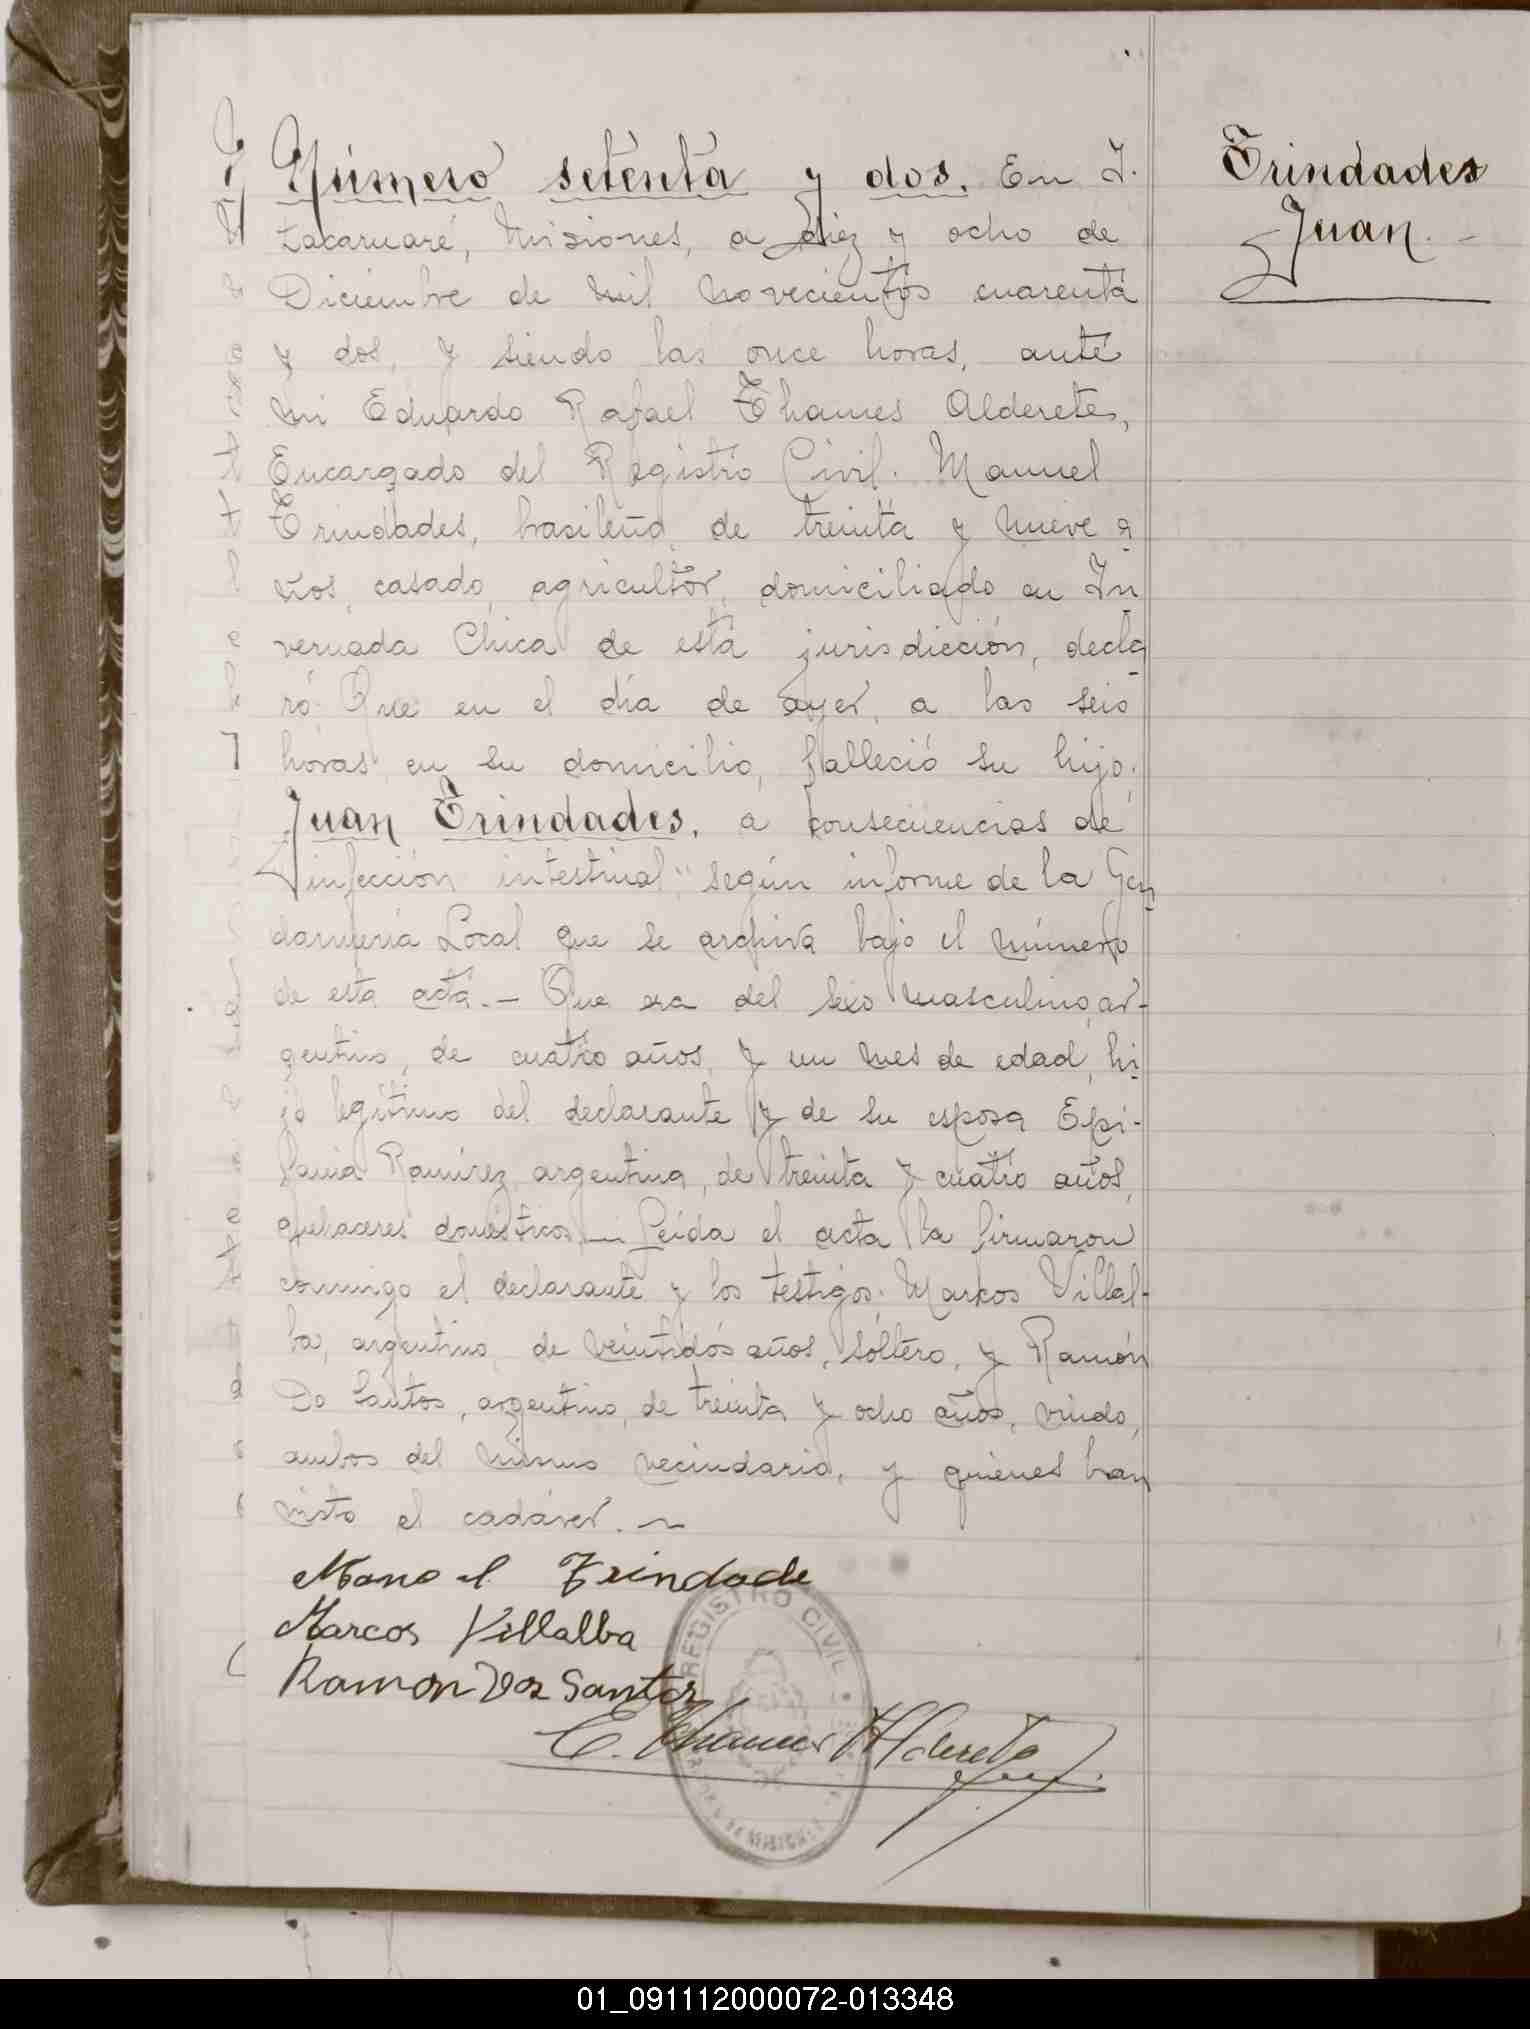 Número setenta y dos. En I-
tacaruaré, Misiones, a diez y ocho de
Diciembre de mil novecientos cuarenta
y dos, y siendo las once horas, ante
mi Eduardo Rafael Thames Alderete,
Encargado del Registro Civil. Manuel
Trindades, brasileño, de treinta y nueve a
ños, casado, agricultor, domiciliado en In
vernada Chica de está jurisdicción, decla
ró: Que en el día de ayer, a las seis
horas en su domicilio, falleció su hijo.
Juan Trindades, a consecuencias de
"infección intestinal" según informe de la Gen
darmería Local que se archiva bajo el número
de esta acta.- Que era del sexo masculino, ar-
gentino, de cuatro años, y un mes de edad, hi
jo legítimo del declarante y de su esposa Epi-
fania Ramírez, argentina, de treinta y cuatro años,
quehaceres domésticos.- Leída el acta la firmaron
conmigo el declarante y los testigos: Markos Villal-
ba, argentino, de veintidós años, sóltero, y Ramón
Do Santos, argentino, de treinta y ocho años, viudo,
ambos del mismo vecindario, y quiénes han
visto el cadáver.
Manoel Trindade
Marcos Villalba
Ramon Dos Santos
E. Thames Alderete
Trindades
Juan.-
REGISTRO CIVIL
01_091112000072-013348